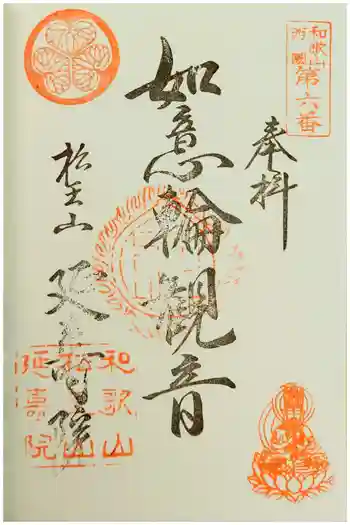 和歌山
西國
第六番
奉拝
如意輪観音
松生山
延壽院
和歌山
延壽院